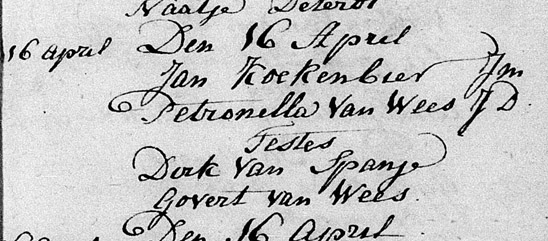 Naatje Deterot
16 april Den 16 April
Jan Koekenbier Jm
Petronella Van Wees J D
Testes
Dirk Van Spanje
Govert van Wees
Den 16 April